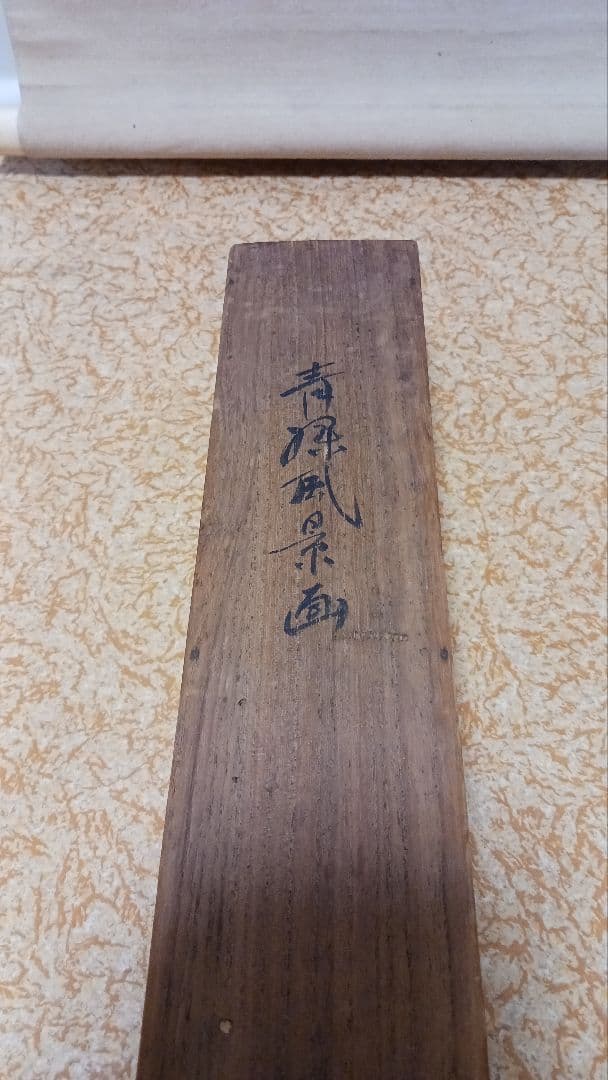 青緑風景画